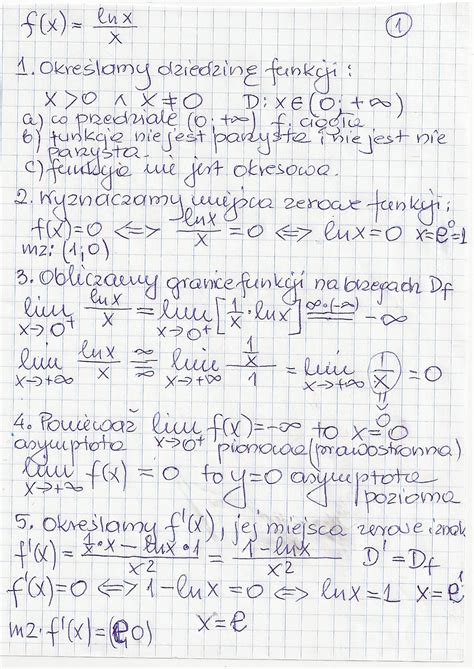 f(x) = lnx/x ①
1. Określamy dziedzinę funkcji:
x>0 ∧ x≠0 D: x∈(0; +∞)
a) w przedziale (0; +∞) f. ciągła
b) funkcja nie jest parzysta i nie jest nie
parzysta.
c) funkcja nie jest okresowa.
2. Wyznaczamy miejsca zerowe funkcji:
f(x)=0 ⟺ lnx/x = 0 ⟺ lnx=0 x=e⁰=1
mz: (1;0)
3. Obliczamy granice funkcji na brzegach Df
lim x→0⁺ lnx/x = lim x→0⁺ [1/x · lnx] = ∞·(-∞) = -∞
lim x→+∞ lnx/x = ∞/∞ = lim x→+∞ (1/x)/1 = lim x→+∞ 1/x = 0
↓
0
4. Ponieważ lim x→0⁺ f(x) = -∞ to x=0
asymptota pionowa (prawostronna)
lim x→+∞ f(x) = 0 to y=0 asymptota
pozioma
5. Określamy f'(x), jej miejsca zerowe i znak
f'(x) = (1/x · x - lnx · 1)/x² = (1-lnx)/x² D' = Df
f'(x)=0 ⟺ 1-lnx = 0 ⟺ lnx=1 x=e¹
mz: f'(x)=(e,0) x=e